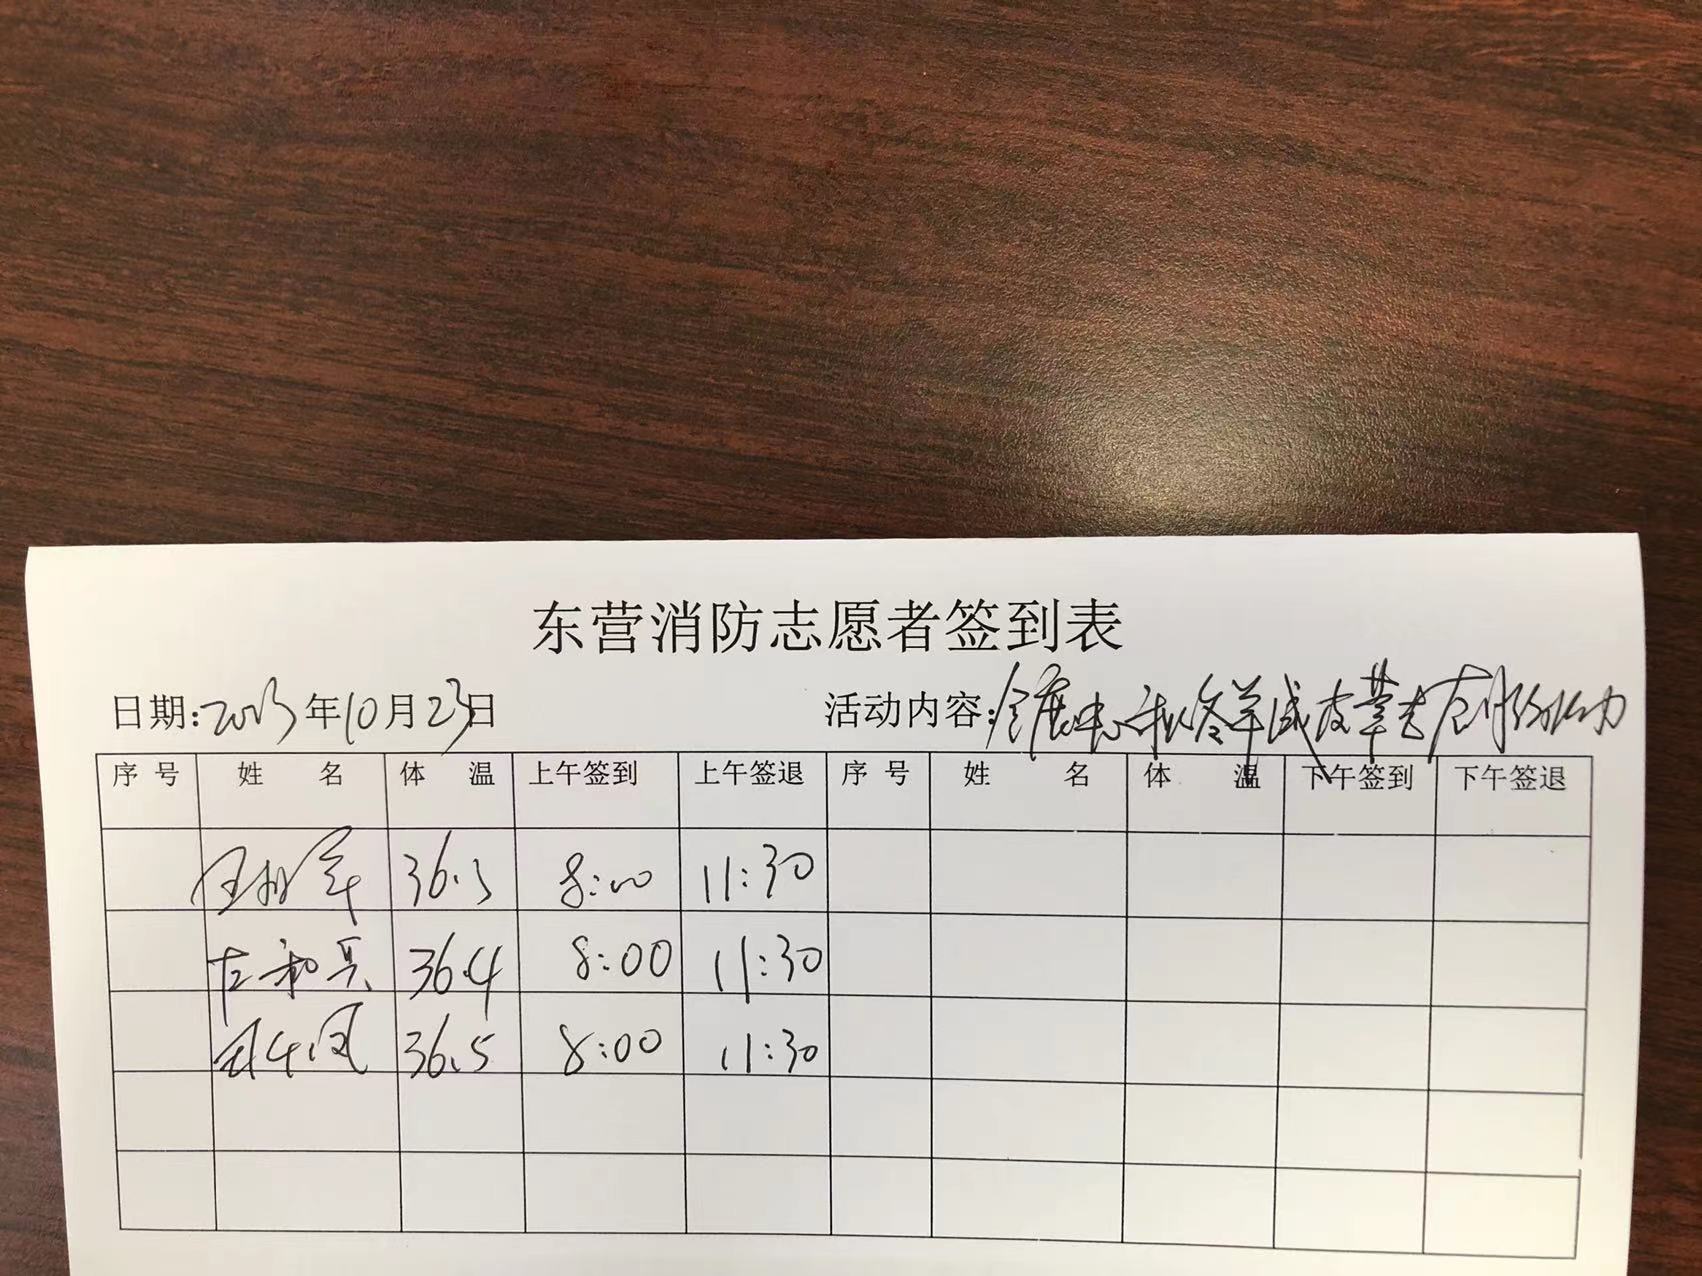 东营消防志愿者签到表
日期:2023年10月23日 活动内容:会展中心秋冬羊绒皮草
序号 姓 名 体 温 上午签到 上午签退 序号 姓 名 体 温 下午签到 下午签退
36.3 8:00 11:30
左和兵 36.4 8:00 11:30
36.5 8:00 11:30